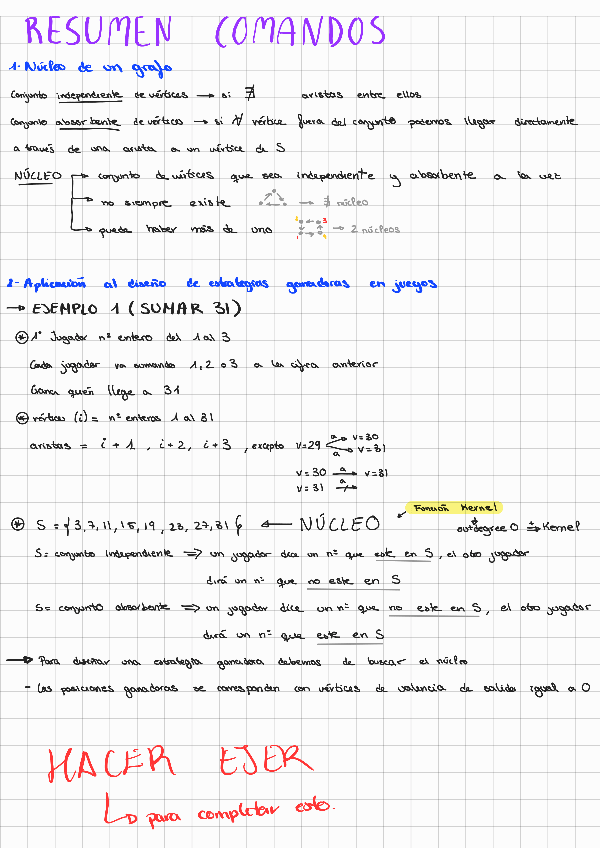 RESUMEN COMANDOS
1- Núcleo de un grafo
Conjunto independiente de vértices → si ∄ aristas entre ellos
Conjunto absorbente de vértices → si ∀ vértice fuera del conjunto podemos llegar directamente
a través de una arista a un vértice de S
NÚCLEO → conjunto de vértices que sea independiente y absorbente a la vez
→ no siempre existe → ∄ núcleo
→ puede haber más de uno → 2 núcleos
2- Aplicación al diseño de estrategias ganadoras en juegos
→ EJEMPLO 1 (SUMAR 31)
* 1º Jugador nº entero del 1 al 3
Cada jugador va sumando 1, 2 o 3 a la cifra anterior
Gana quén llege a 31
* vértices (i) = nº enteros 1 al 31
aristas = i + 1 , i + 2, i + 3 , excepto v=29 a→ v=30
a→ v=31
v=30 a→ v=31
v=31 a↛
Función Kernel
* S = { 3, 7, 11, 15, 19, 23, 27, 31 } ← NÚCLEO outdegree 0 ⇒ Kernel
S= conjunto independiente ⇒ un jugador dice un nº que este en S, el otro jugador
dirá un nº que no este en S
S= conjunto absorbente ⇒ un jugador dice un nº que no este en S, el otro jugador
dirá un nº que este en S
→ Para diseñar una estrategia ganadora debemos de buscar el núcleo
- Las posiciones ganadoras se corresponden con vértices de valencia de salida igual a 0
HACER EJER
↳ para completar esto.